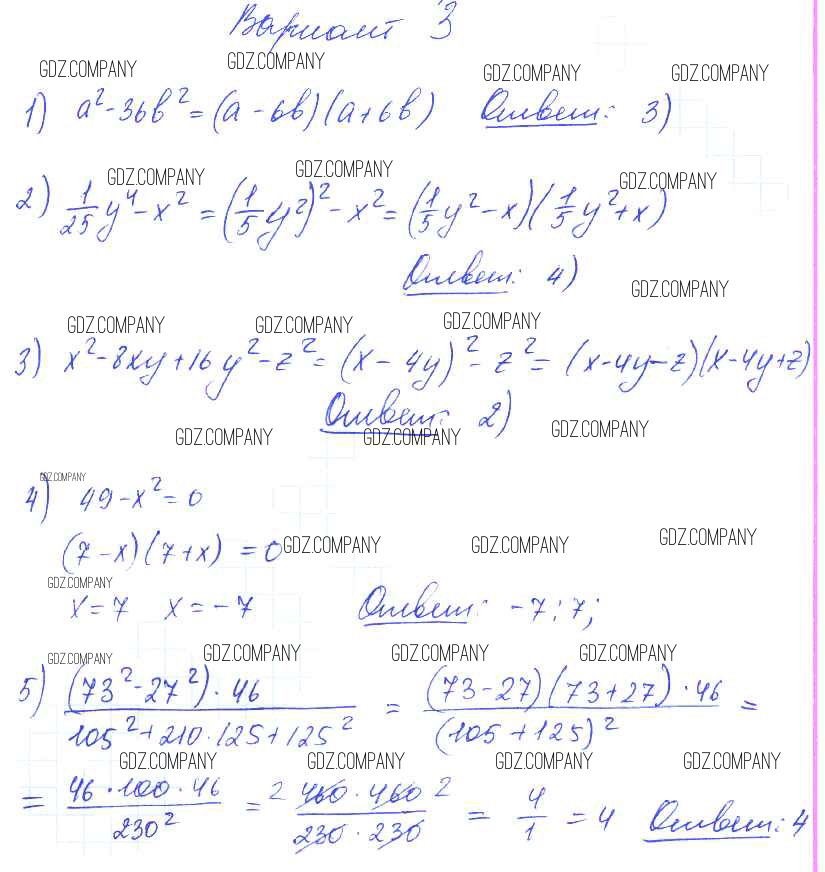 Вариант 3
GDZ.COMPANY GDZ.COMPANY GDZ.COMPANY GDZ.COMPANY
1) a² - 36b² = (a - 6b)(a + 6b) Ответ: 3)
GDZ.COMPANY GDZ.COMPANY GDZ.COMPANY
2) 1/25 y⁴ - x² = (1/5 y²)² - x² = (1/5 y² - x)(1/5 y² + x)
Ответ: 4)
GDZ.COMPANY
GDZ.COMPANY GDZ.COMPANY GDZ.COMPANY
3) x² - 8xy + 16y² - z² = (x - 4y)² - z² = (x - 4y - z)(x - 4y + z)
Ответ: 2)
GDZ.COMPANY GDZ.COMPANY GDZ.COMPANY
GDZ.COMPANY
4) 49 - x² = 0
(7 - x)(7 + x) = 0 GDZ.COMPANY GDZ.COMPANY GDZ.COMPANY
GDZ.COMPANY
x = 7 x = -7 Ответ: -7; 7;
GDZ.COMPANY GDZ.COMPANY GDZ.COMPANY GDZ.COMPANY
5) (73² - 27²) · 46 / 105² + 210 · 125 + 125² = (73 - 27)(73 + 27) · 46 / (105 + 125)² =
GDZ.COMPANY GDZ.COMPANY GDZ.COMPANY GDZ.COMPANY
= 46 · 100 · 46 / 230² = 2 460 · 460 2 / 230 · 230 = 4/1 = 4 Ответ: 4